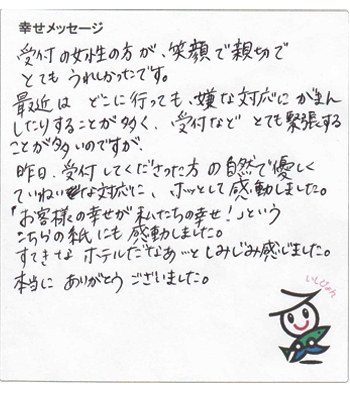 幸せメッセージ
受付の女性の方が、笑顔で親切で
とてもうれしかったです。
最近は どこに行っても、嫌な対応に がまん
したりすることが多く、受付など とても緊張する
ことが多いのですが、
昨日、受付してくださった方の自然で優しく
ていねいな対応に、ホッとして感動しました。
「お客様の幸せが私たちの幸せ!」という
こちらの紙にも感動しました。
すてきな ホテルだなあ…としみじみ感じました。
本当に ありがとうございました。